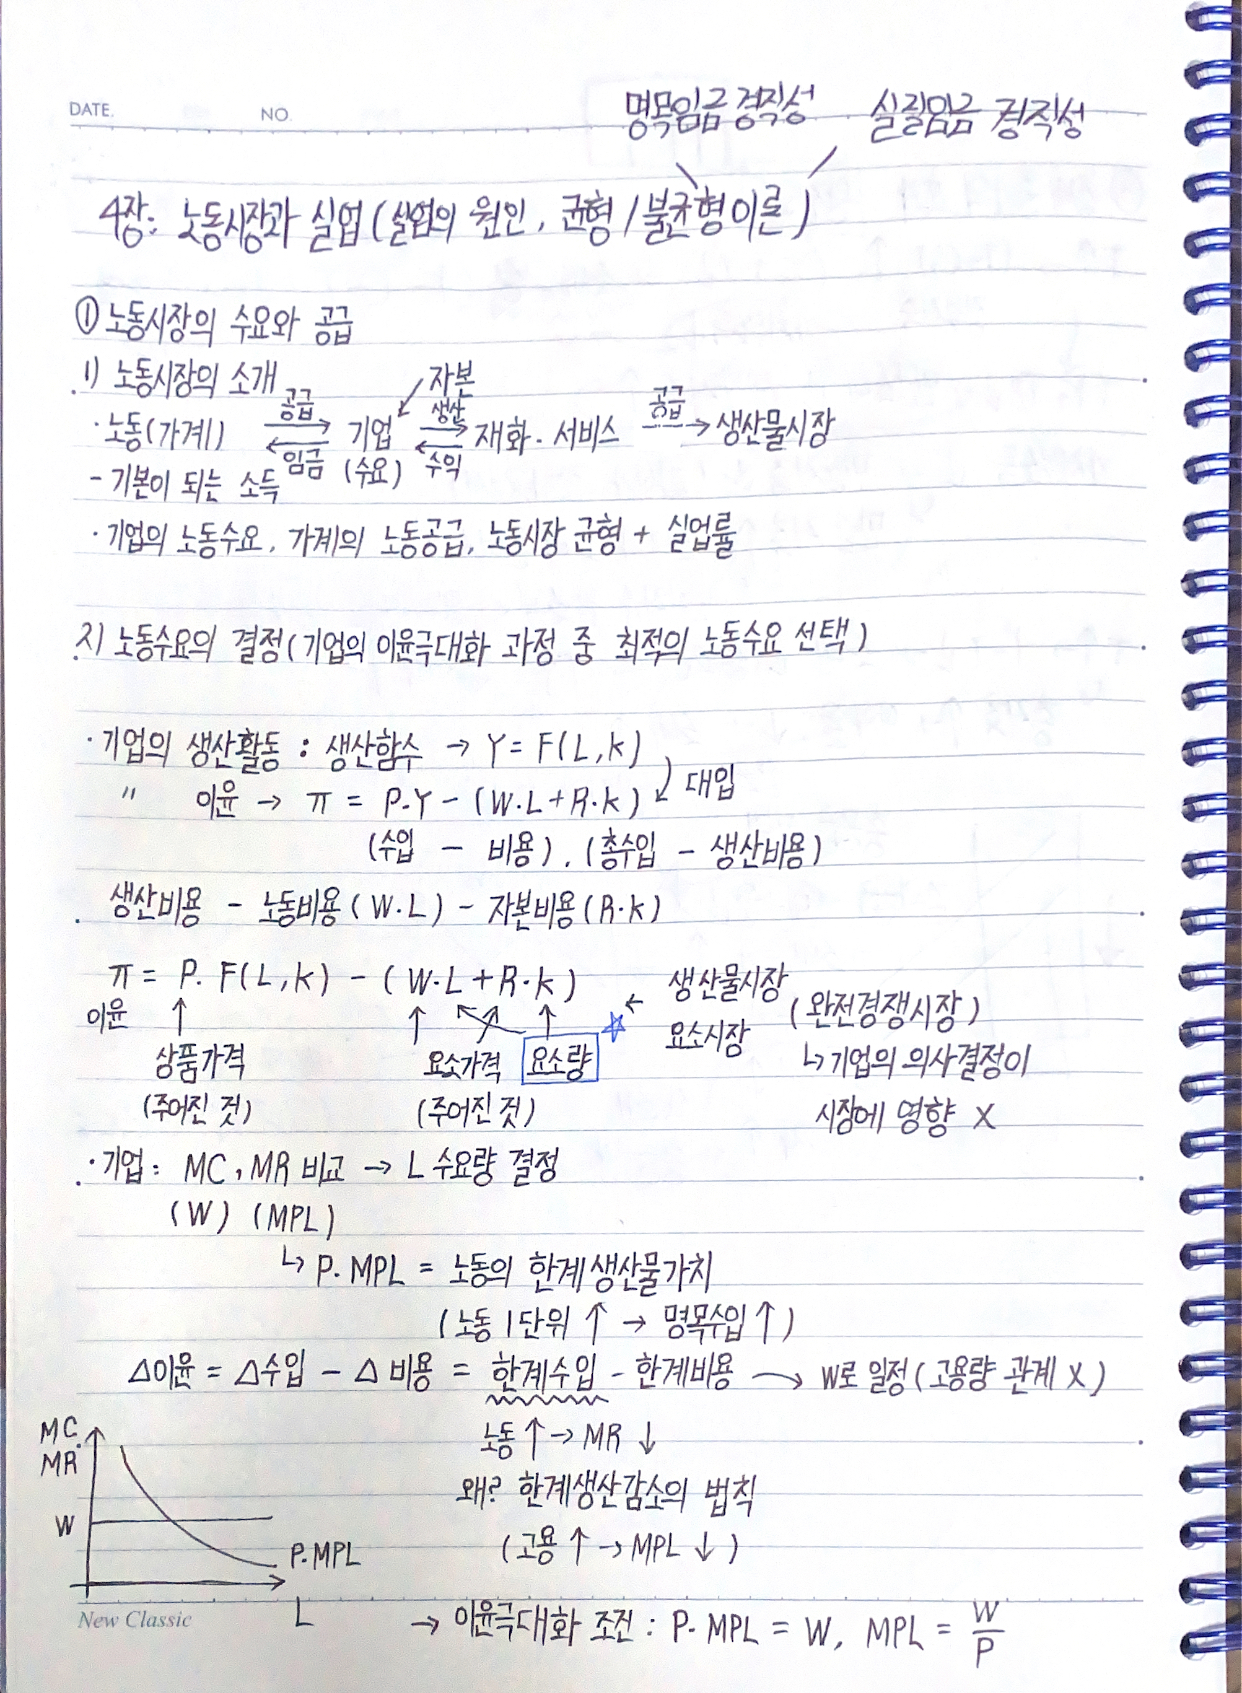 DATE. NO.
명목임금 경직성 실질임금 경직성
4장: 노동시장과 실업 (실업의 원인, 균형/불균형이론)
① 노동시장의 수요와 공급
1) 노동시장의 소개
공급 생산 자본 공급
·노동(가계) → 기업 → 재화·서비스 → 생산물시장
← 임금 (수요) ← 수익
- 기본이 되는 소득
·기업의 노동수요, 가계의 노동공급, 노동시장 균형 + 실업률
2) 노동수요의 결정(기업의 이윤극대화 과정 중 최적의 노동수요 선택)
·기업의 생산활동 : 생산함수 → Y = F(L,K)
" 이윤 → π = P·Y - (W·L+R·K) 대입
(수입 - 비용), (총수입 - 생산비용)
생산비용 - 노동비용(W·L) - 자본비용(R·K)
π = P·F(L,K) - (W·L+R·K) ☆ ← 생산물시장
이윤 ↑ ↑ ↑ 요소시장 (완전경쟁시장)
상품가격 요소가격 요소량 ↳ 기업의 의사결정이
(주어진 것) (주어진 것) 시장에 영향 X
·기업: MC, MR 비교 → L 수요량 결정
(W) (MPL)
↳ P·MPL = 노동의 한계생산물가치
(노동 1단위 ↑ → 명목수입 ↑)
△이윤 = △수입 - △비용 = 한계수입 - 한계비용 → W로 일정(고용량 관계 X)
노동 ↑ → MR ↓
왜? 한계생산감소의 법칙
(고용 ↑ → MPL ↓)
MC.
MR
W
P·MPL
L
→ 이윤극대화 조건 : P·MPL = W, MPL = W/P
New Classic